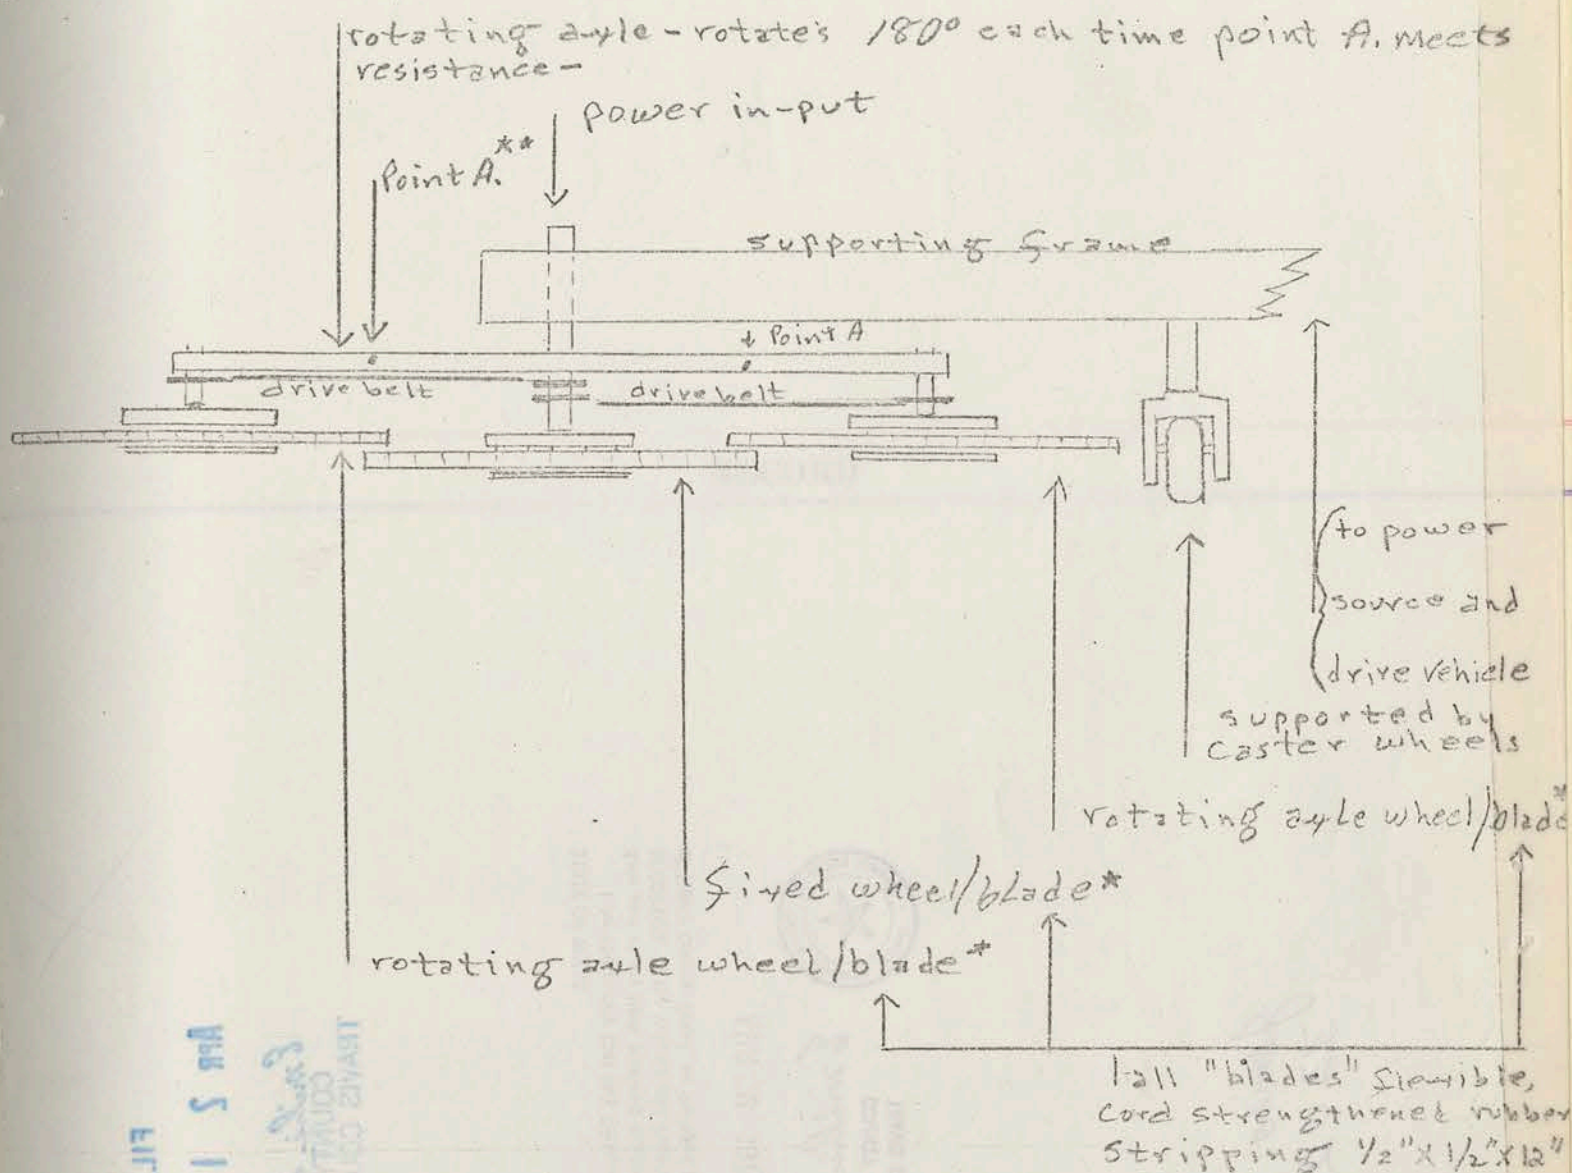 rotating axle - rotate's 180° each time point A. meets
resistance -
power in-put
Point A.**
supporting frame
Point A
drive belt
drive belt
to power
source and
drive vehicle
supported by
caster wheels
rotating axle wheel/blade*
fixed wheel/blade*
rotating axle wheel/blade*
1-all "blades" flexible,
cord strengthened rubber
stripping 1/2" X 1/2" X 12"
APR 2 1
TRAVIS
COUNTY
FIL